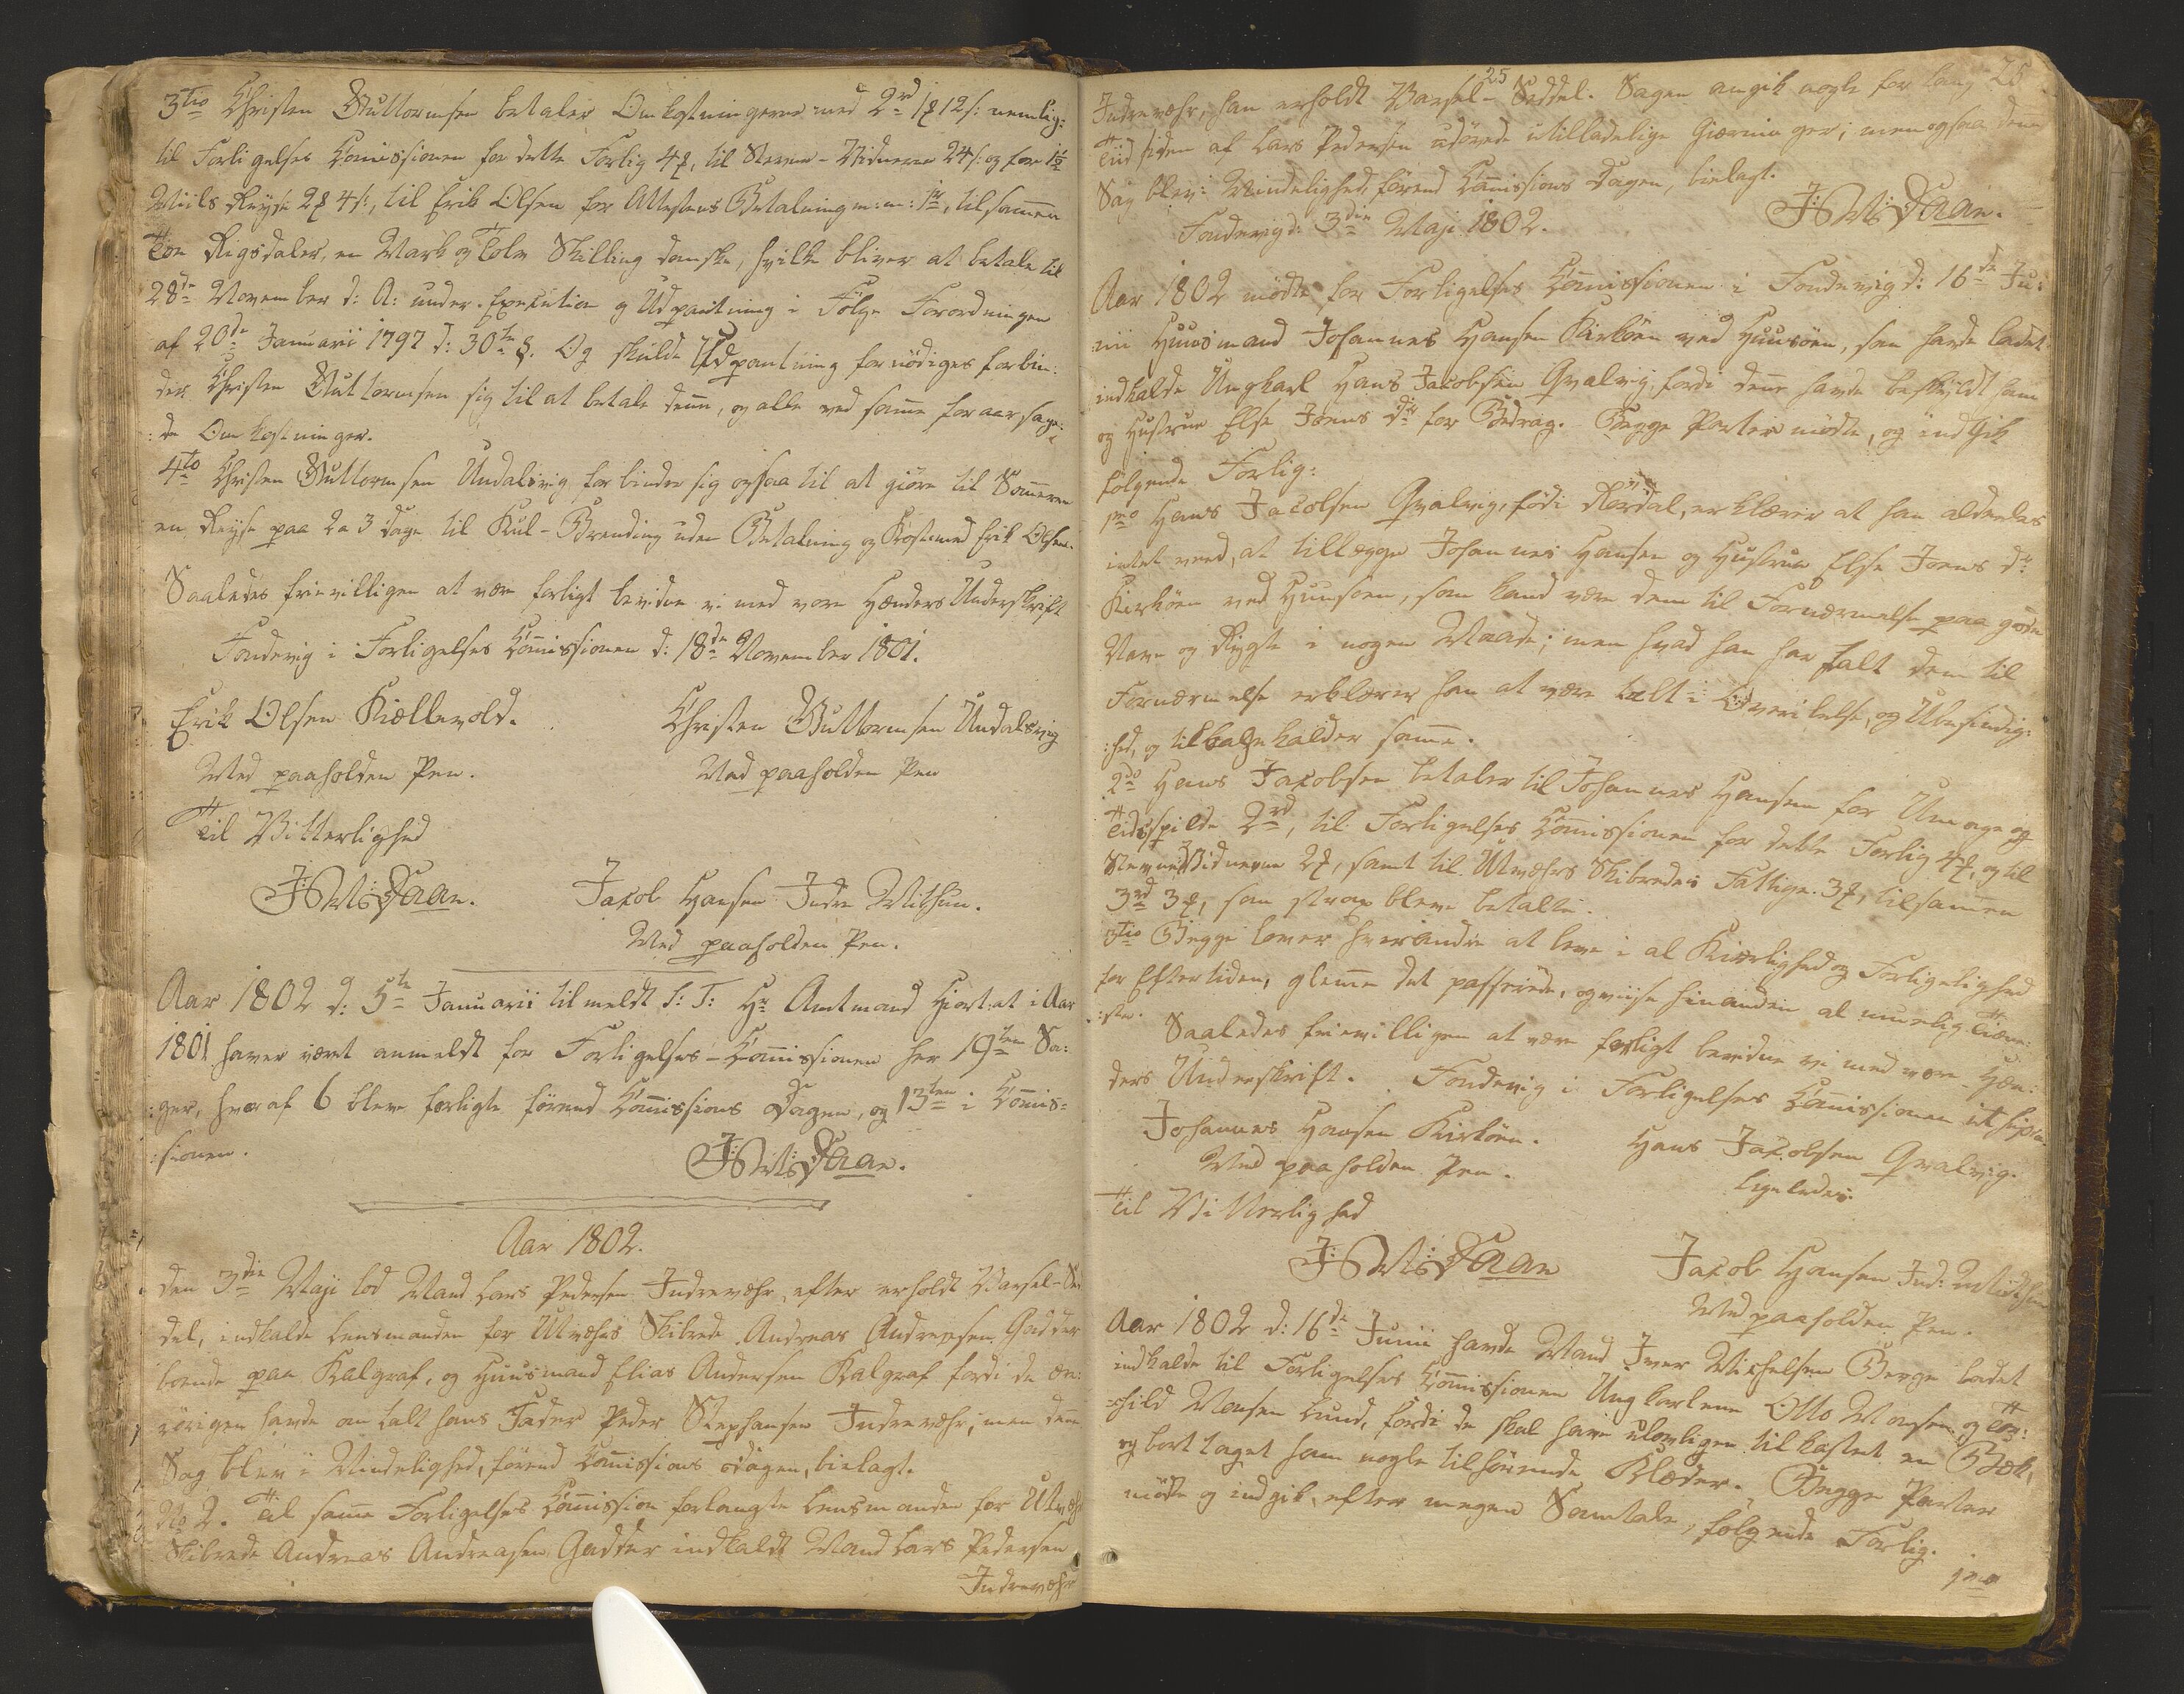 3tio Christen Guttormsen betaler Omkostningerne med 2rd 1ꝑ 12s: nemlig:
til Forligelses Comissionen for dette Forlig 4ꝑ, til Stevne-Vidnerne 24s: og for 1½
Miils Reyse 2ꝑ 4s:, til Erik Olsen for Attestens Betalning m: m: 1rd, tilsamen
Toe Rigsdaler, en Mark og Tolv Skilling danske, hvilke bliver at betale til
28de November d: A: under Execution og Udpantning i Følge Forordningen
af 20de Januarii 1797 d: 30te §. Og skulde Udpantning fornødiges forbin:
der Christen Guttormsen sig til at betale denne, og alle ved same foraarsage:
:de Omkostninger.
4to Christen Guttormsen Undalsvig forbinder sig ogsaa til at giøre til Someren
en Reyse paa 2 a 3 Dage til Kul-Brending uden Betalning og Kost med Erik Olsen.
Saaledes frievilligen at være forligt bevidne vi med vore Hænders Underskrift
Tondevig i Forligelses Comissionen d: 18de November 1801.
Erik Olsen Kiellevold. Christen Guttormsen Undalsvig
Med paaholden Pen. Med paaholden Pen
Til Vitterlighed
J: M: Daae. Jacob Hansen Indre Mithun.
Med paaholden Pen.
Aar 1802 d: 5te Januarii tilmeldt S: T: Hr Amtmand Hiort at i Aar
1801 haver været anmeldt for Forligelses-Comissionen her 19ten Sa:
:ger, hvoraf 6 bleve forligte førend Comissions Dagen, og 13ten i Comis=
:sionen.
J: M: Daae.
Aar 1802.
den 3die Maji lod Mand Lars Pedersen Indrevæhr, efter erholdt Varsel-Se
del, indkalde Lensmanden for Utvæhrs Skibrede Andreas Andreasen Gadder
boende paa Kalgraf, og Huusmand Elias Andersen Kalgraf fordi de æn:
rørigen havde omtalt hans Fader Peder Stephansen Indrevæhr; men denne
Sag blev i Mindelighed, førend Comissions Dagen, bielagt.
No 2. Til same Forligelses Comission forlangte Lensmanden for Utvæhr
Skibrede Andreas Andreasen Gadder indkaldt Mand Lars Pedersen
Indrevæhr
25 25
Indrevæhr, han erholdt Varsel-Seddel. Sagen angik nogle for lang
Tiid siden af Lars Pedersen udøvede utilladelige Gierninger; men ogsaa denne
Sag blev i Mindelighed, førend Comissions Dagen, bielagt.
Tondevig d: 3die Maji 1802. J: M: Daae.
Aar 1802 mødte for Forligelses Comissionen i Tondevig d: 16de Ju:
:nii Huusmand Johannes Hansen Kirkøen ved Huusøen, som havde ladet
indkalde Ungkarl Hans Jacobsen Qvalvig, fordi denne havde beskyldt ham
og Hustrue Else Joens dtr for Bedrag. Begge Parter mødte, og indgik
følgende Forlig:
1mo Hans Jacobsen Qvalvig, fødi Rørdal, erklærer at han aldeeles
intet veed, at tillægge Johannes Hansen og Hustrue Else Joens dr
Kirkøen ved Huusøen, som kand være dem til Fornærmelse paa gode
Navn og Rygte i nogen Maade; men hvad han har talt dem til
Fornærmelse erklærer han at være talt i Overilelse, og Ubesindig:
:hed, og tilbagekalder same.
2do Hans Jacobsen betaler til Johannes Hansen for Umage og
Tidsspilde 2rd, til Forligelses Comissionen for dette Forlig 4ꝑ, og til
Stevne Vidnerne 2ꝑ, samt til Utvæhrs Skibredes Fattige 3ꝑ, tilsamen
3rd 3ꝑ, som strax bleve betalte.
3tio Begge lover hverandre at leve i al Kierlighed og Forligelighed
for Eftertiden, gleme det passerede, og viise hinanden al muelig Tiene:
:ste.
Saaledes frievilligen at være forligt bevidne vi med vore Hæn:
ders Underskrift. Tondevig i Forligelses Comissionen ut supra
Johannes Hansen Kirkøen. Hans Jacobsen Qvalvig.
Med paaholden Pen. Ligeledes.
Til Vitterlighed
J: M: Daae Jacob Hansen Ind: Midthun
Med paaholden Pen.
Aar 1802 d: 16de Junii havde Mand Iver Michelsen Berge ladet
indkalde til Forligelses Comissionen Ungkarlene Otto Monsen og Tor:
:child Monsen Lund, fordi de skal have ulovligen tilkastet en Bæk,
og borttaget ham nogle tilhørende Klæder. Begge Parter
mødte og indgik, efter megen Samtale, følgende Forlig.
1mo